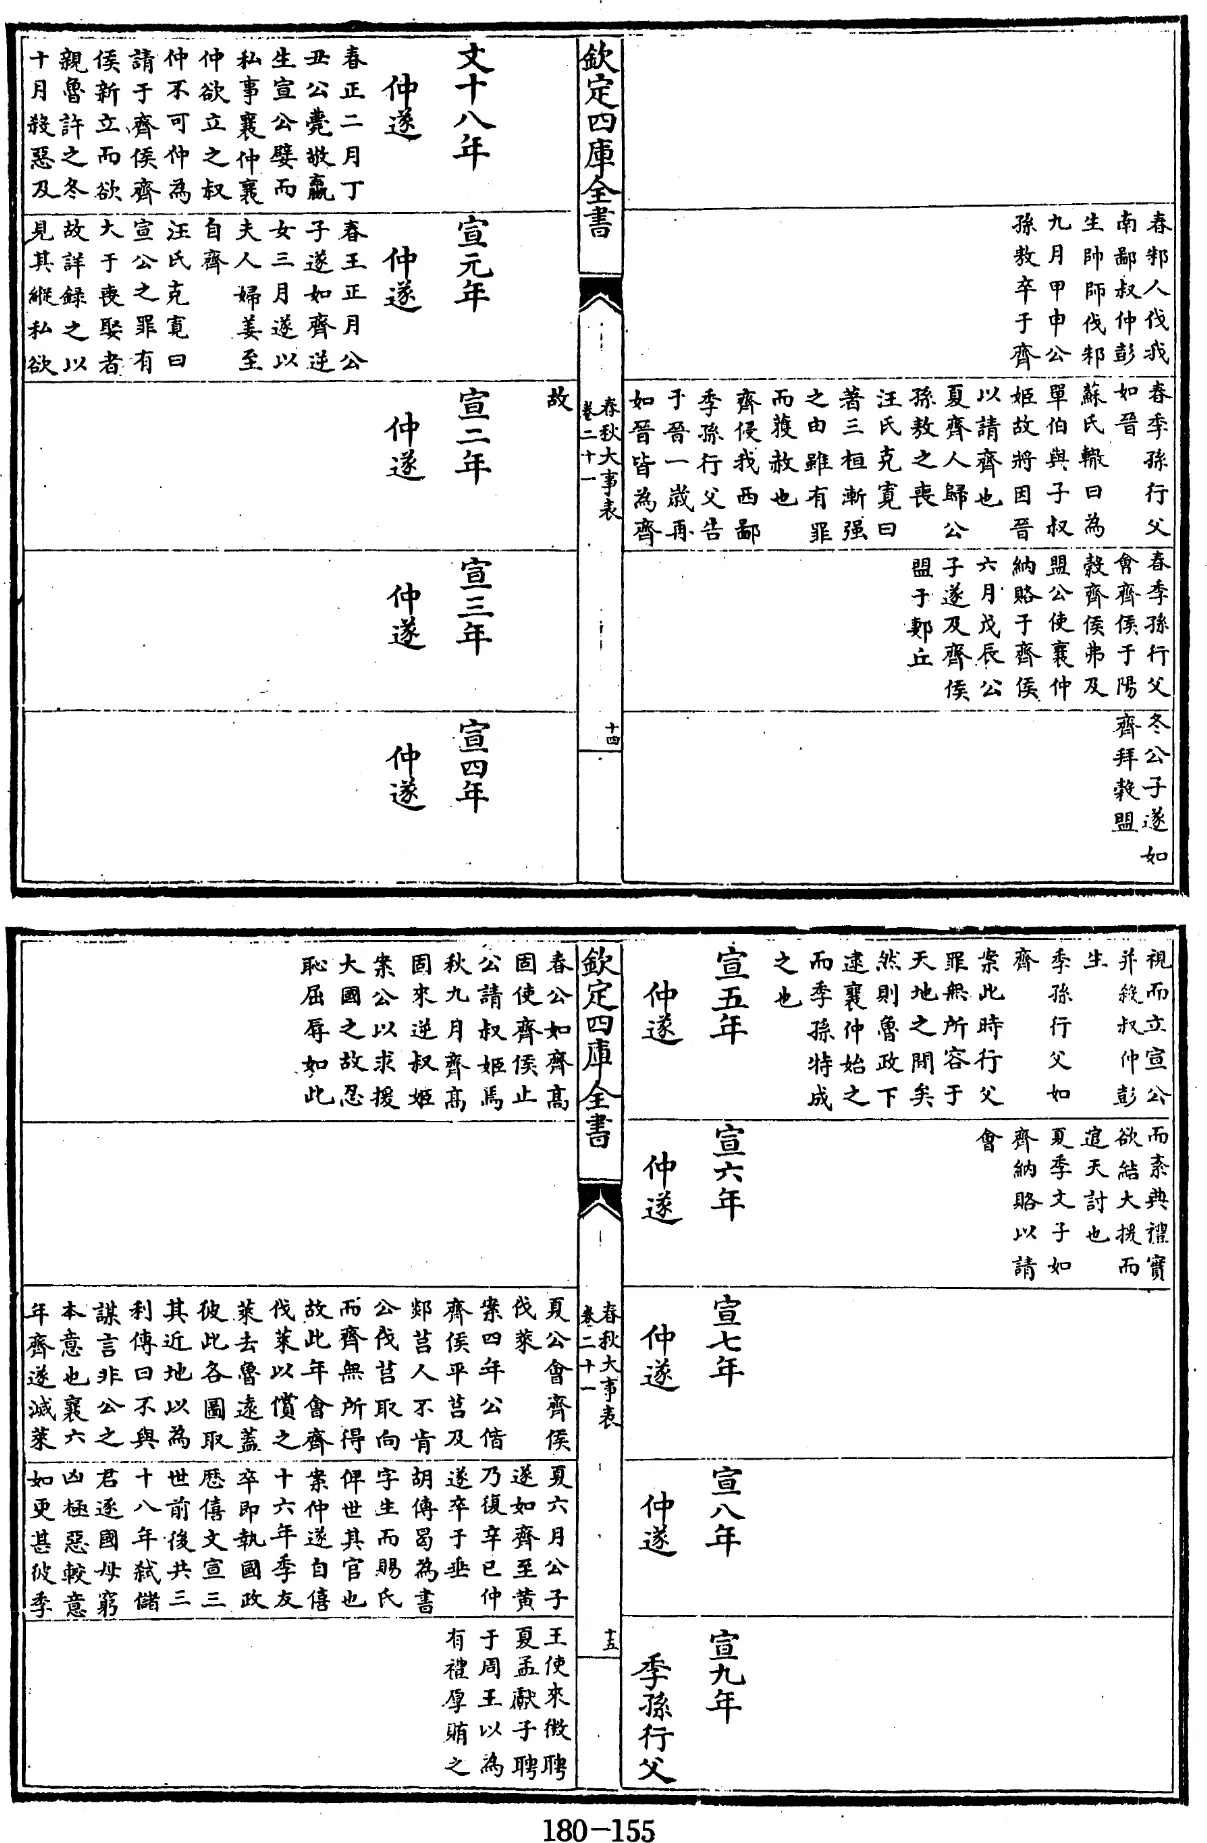 春邾人伐我
南鄙叔仲彭
生帥師伐邾
九月甲申公
孫敖卒于齊
春季孫行父
如晉
蘇氏轍曰為
單伯與子叔
姬故將因晉
以請齊也
夏齊人歸公
孫敖之喪
汪氏克寛曰
著三桓漸强
之由雖有罪
而蒗赦也
齊侵我西鄙
季孫行父告
于晉一歳再
如晉皆為齊
春季孫行父
會齊侯于陽
糓齊侯弗及
盟公使襄仲
納賂于齊侯
六月戊辰公
子遂及齊侯
盟于郪丘
冬公子遂如
齊拜糓盟
欽定四庫全書
春秋大事表
卷二十一
十四
故
文十八年
仲遂
春正二月丁
丑公薨敬嬴
生宣公嬖而
私事襄仲襄
仲欲立之叔
仲不可仲為
請于齊侯齊
侯新立而欲
親魯許之冬
十月殺惡及
宣元年
仲遂
春王正月公
子遂如齊逆
女三月遂以
夫人婦姜至
自齊
汪氏克寛曰
宣公之罪有
大于喪娶者
故詳録之以
見其縱私欲
宣二年
仲遂
宣三年
仲遂
宣四年
仲遂
視而立宣公
并殺叔仲彭
生
季孫行父如
齊
案此時行父
罪無所容于
天地之間矣
然則魯政下
逮襄仲始之
而季孫特成
之也
而紊典禮實
欲結大援而
逭天討也
夏季文子如
齊納賂以請
會
宣五年
仲遂
宣六年
仲遂
宣七年
仲遂
宣八年
仲遂
宣九年
季孫行父
欽定四庫全書
春秋大事表
卷二十一
十五
春公如齊髙
固使齊侯止
公請叔姬焉
秋九月齊髙
固來逆叔姬
案公以求援
大國之故忍
恥屈辱如此
夏公會齊侯
伐萊
案四年公偕
齊侯平莒及
郯莒人不肯
公伐莒取向
而齊無所得
故此年會齊
伐萊以償之
萊去魯遠蓋
彼此各圖取
其近地以為
利傳曰不與
謀言非公之
本意也襄六
年齊遂滅萊
夏六月公子
遂如齊至黄
乃復辛巳仲
遂卒于垂
胡傳曷為書
字生而賜氏
俾世其官也
案仲遂自僖
十六年季友
卒即執國政
歴僖文宣三
世前後共三
十八年弑儲
君逐國母窮
凶極惡較意
如更甚彼季
王使來徴聘
夏孟獻子聘
于周王以為
有禮厚賄之
180-155